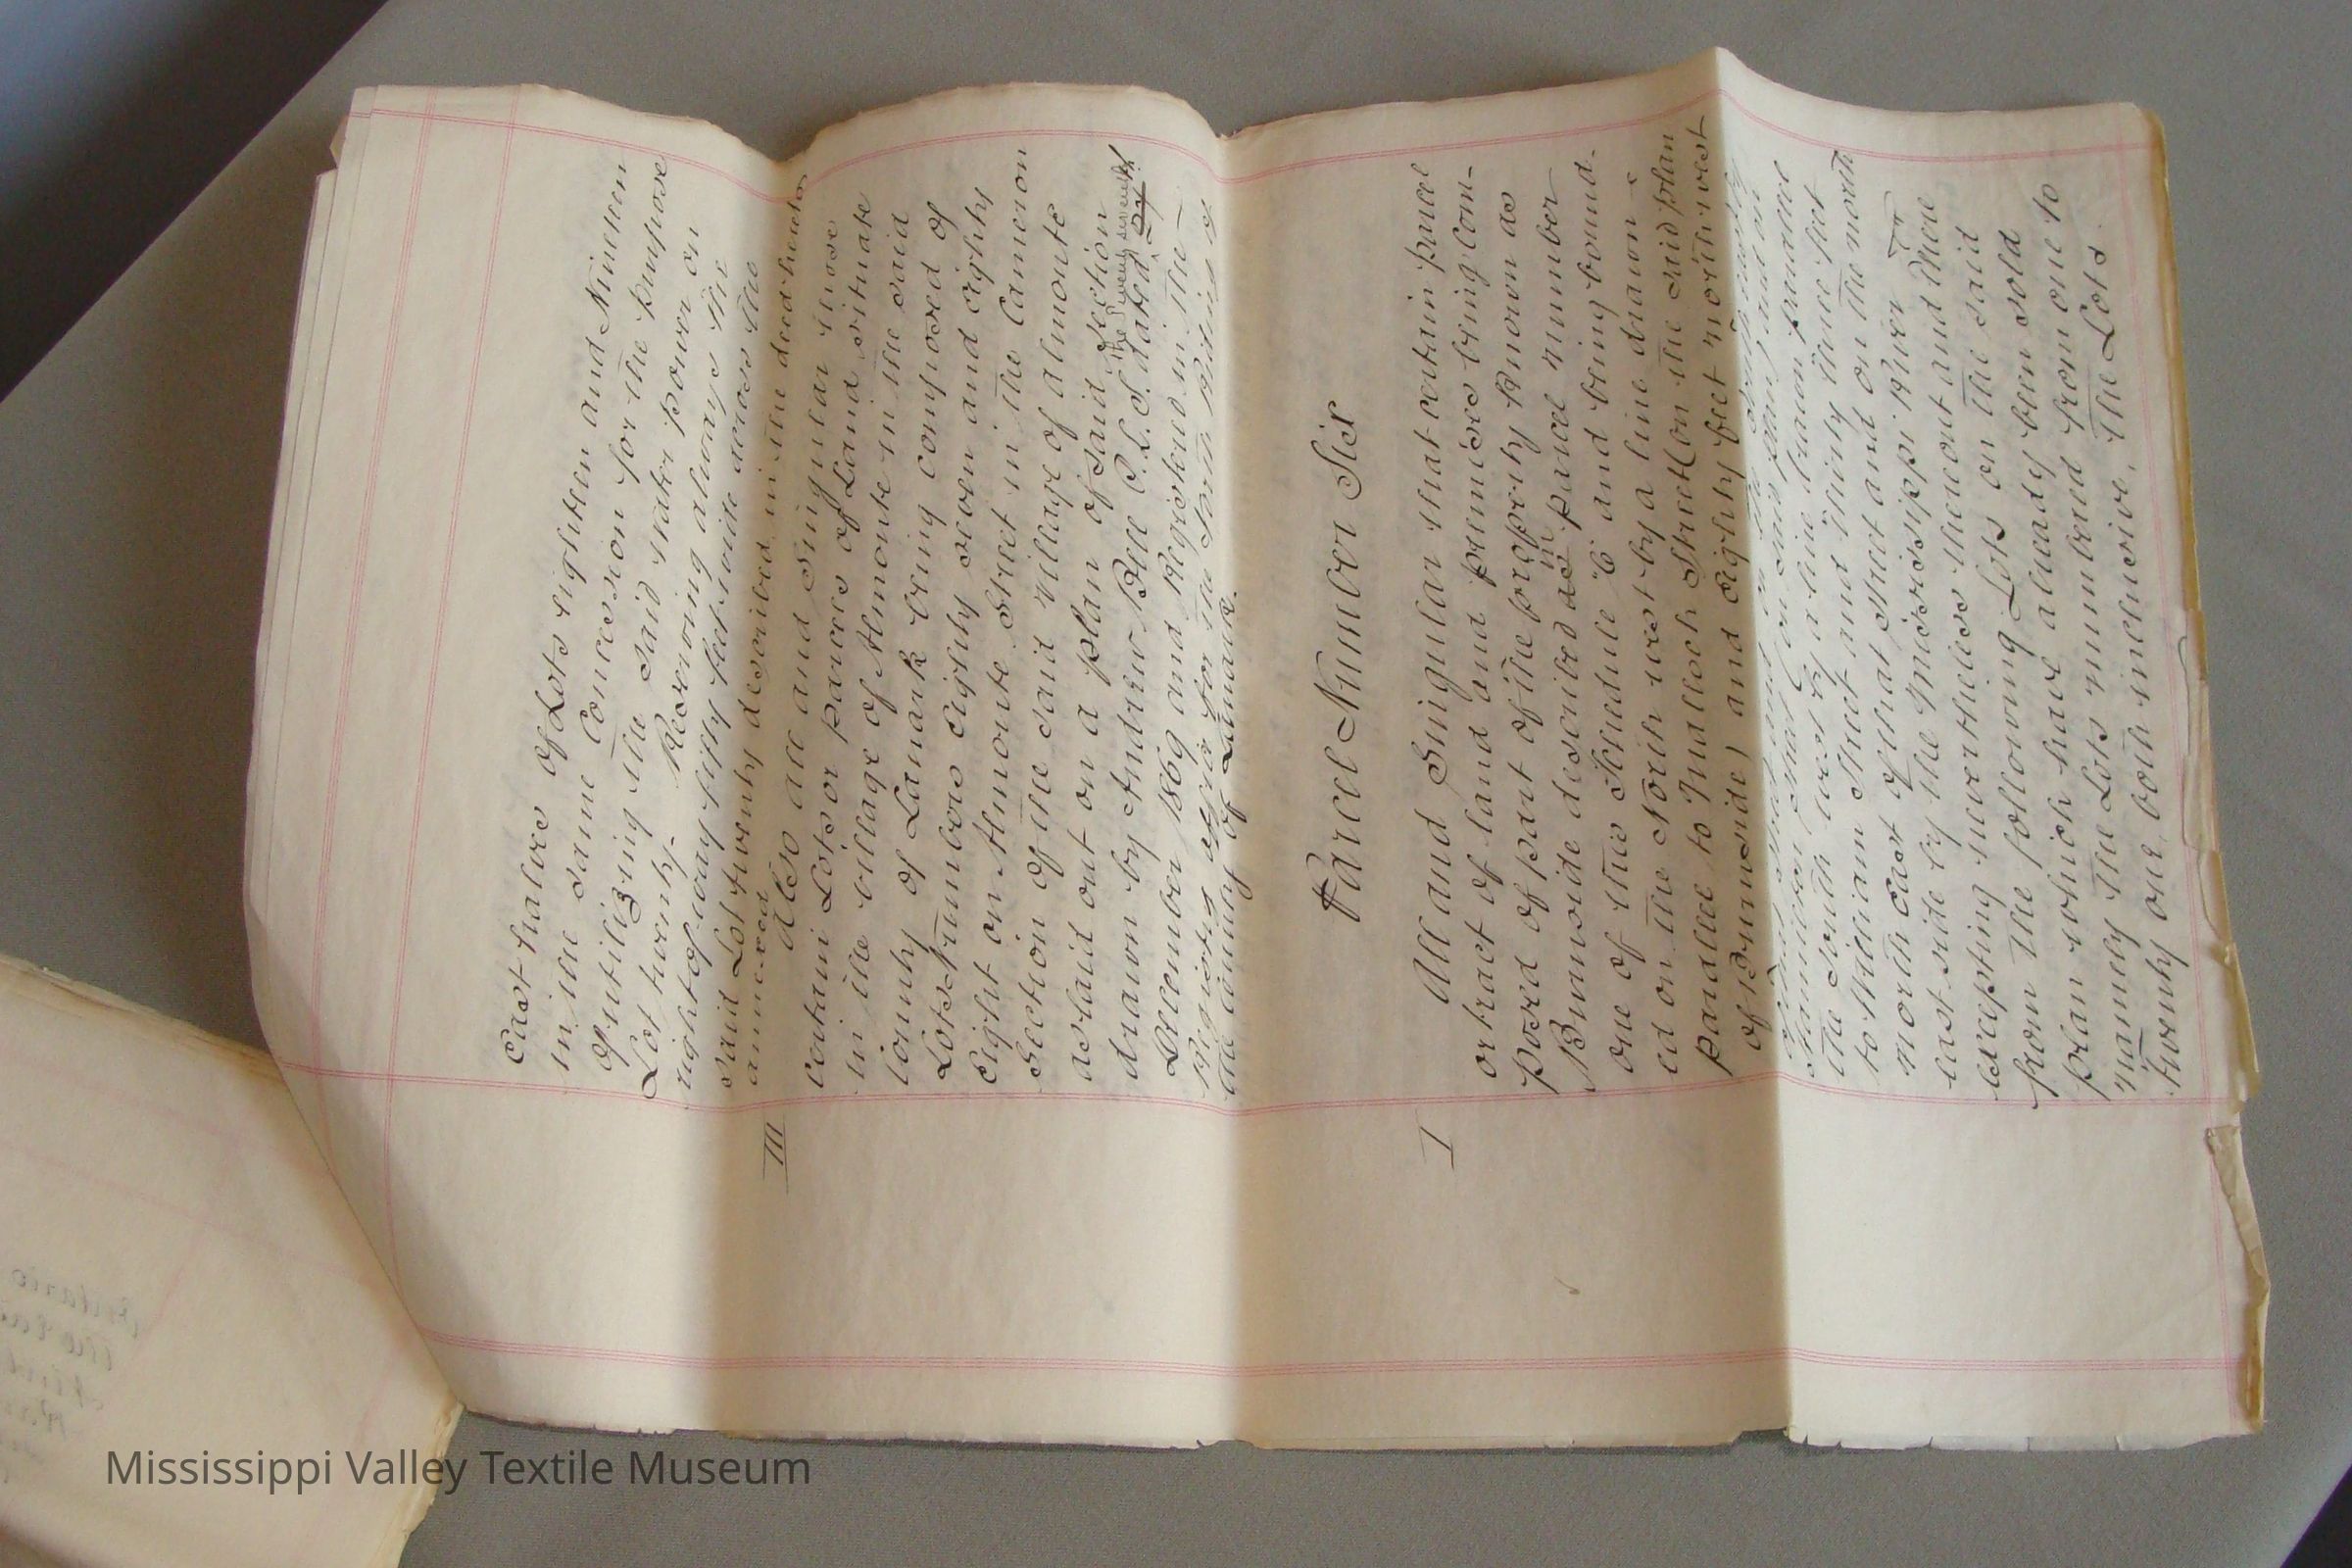 East halves of Lots eighteen and Nineteen
in the same Concession for the purpose
of utilizing the said water power on
Lot twenty. Reserving always the
right of way fifty feet wide across the
said Lot twenty described in the deed hereto
annexed
III Also all and Singular those
certain Lots or parcels of Land situate
in the village of Almonte in the said
County of Lanark being composed of
Lots Numbers eighty seven and eighty
Eight on Almonte Street in the Cameron
Section of the said Village of Almonte
as laid out on a plan of said Section
drawn by Andrew Bell P.L.S. dated the twenty seventh
December 1869 and Registered in the
Registry office for the South Riding of
the County of Lanark.
Parcel Number Six
I All and Singular that certain parcel
or tract of land and premises being Com-
posed of part of the property known as
Burnside described as in parcel number
one of this Schedule C and being bound-
ed on the North west by a line drawn
parallel to Malloch Street (on the said plan
of Burnside) and eighty feet north west
of that street and
Hamilton on said plan) and on
the South west by a line drawn parallel
to William Street and thirty three feet
north east of that street and on the north
east side by the Mississippi River
excepting nevertheless thereout and there
from the following Lots on the said
plan which have already been sold
namely the Lots numbered from one to
twenty one both inclusive, the Lots
Mississippi Valley Textile Museum